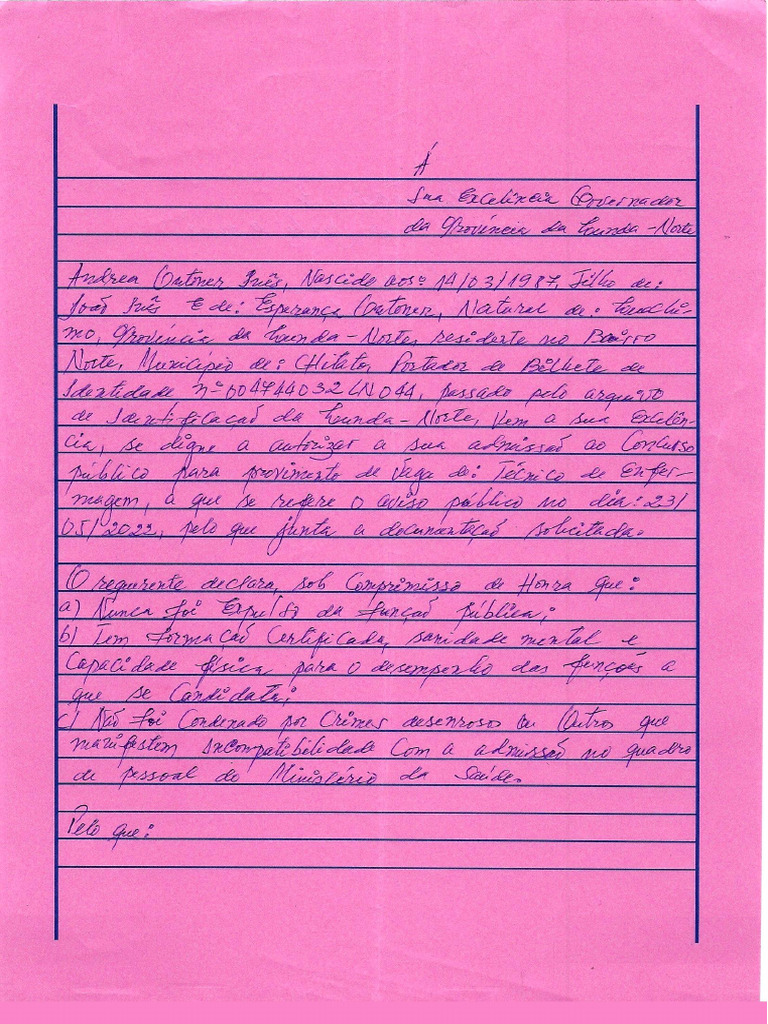 Á
Sua Excelência Governador
da Província da Lunda-Norte
Andrea Inês, Nascido aos: 14/03/1987, Filho de:
João Inês E de: Esperança, Natural de: Luachi-
mo, Província da Lunda-Norte, residente no Bairro
Norte, Município de: Chitato, Portador de Bilhete de
Identidade nº 004744032LN044, passado pelo arquivo
de Identificação da Lunda-Norte, vem a sua Excelên-
cia, se digne a autorizar a sua admissão ao Concurso
público para provimento de vaga de: Técnico de Enfer-
magem, a que se refere o aviso público no dia: 23/
05/2022, pelo que junta a documentação solicitada.
O requerente declara, sob Compromisso de Honra que:
a) Nunca foi Expulso da função pública;
b) Tem formação Certificada, sanidade mental e
Capacidade física para o desempenho das funções a
que se Candidata;
c) Não foi Condenado por Crimes desenrosos ou Outros que
manifestem incompatibilidade Com a admissão no quadro
de pessoal do Ministério da Saúde.
Pelo que: